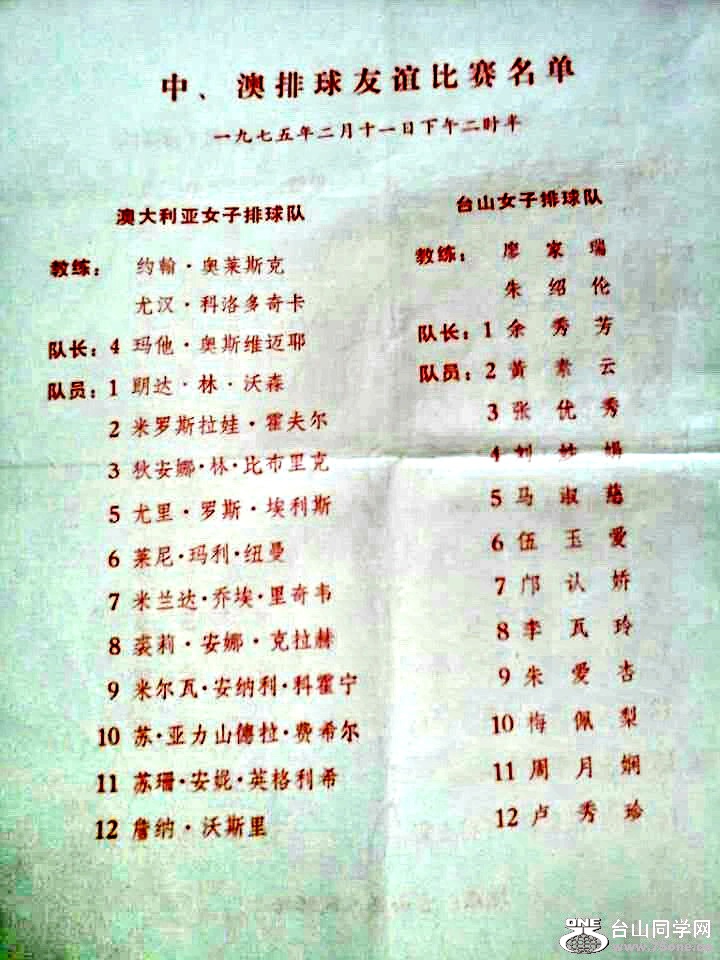 中、澳排球友谊比赛名单
一九七五年二月十一日下午二时半
澳大利亚女子排球队
教练： 约翰·奥莱斯克
尤汉·科洛多奇卡
队长：4 玛他·奥斯维迈耶
队员：1 朗达·林·沃森
2 米罗斯拉娃·霍夫尔
3 狄安娜·林·比布里克
5 尤里·罗斯·埃利斯
6 莱尼·玛利·纽曼
7 米兰达·乔埃·里奇韦
8 裘莉·安娜·克拉赫
9 米尔瓦·安纳利·科霍宁
10 苏·亚力山德拉·费希尔
11 苏珊·安妮·英格利希
12 詹纳·沃斯里
台山女子排球队
教练： 廖家瑞
朱绍伦
队长：1 余秀芳
队员：2 黄素云
3 张优秀
4 刘
5 马淑慈
6 伍玉爱
7 邝认娇
8 李瓦玲
9 朱爱杏
10 梅佩梨
11 周月娴
12 卢秀珍
ONE
台山同学网
www.75one.cn